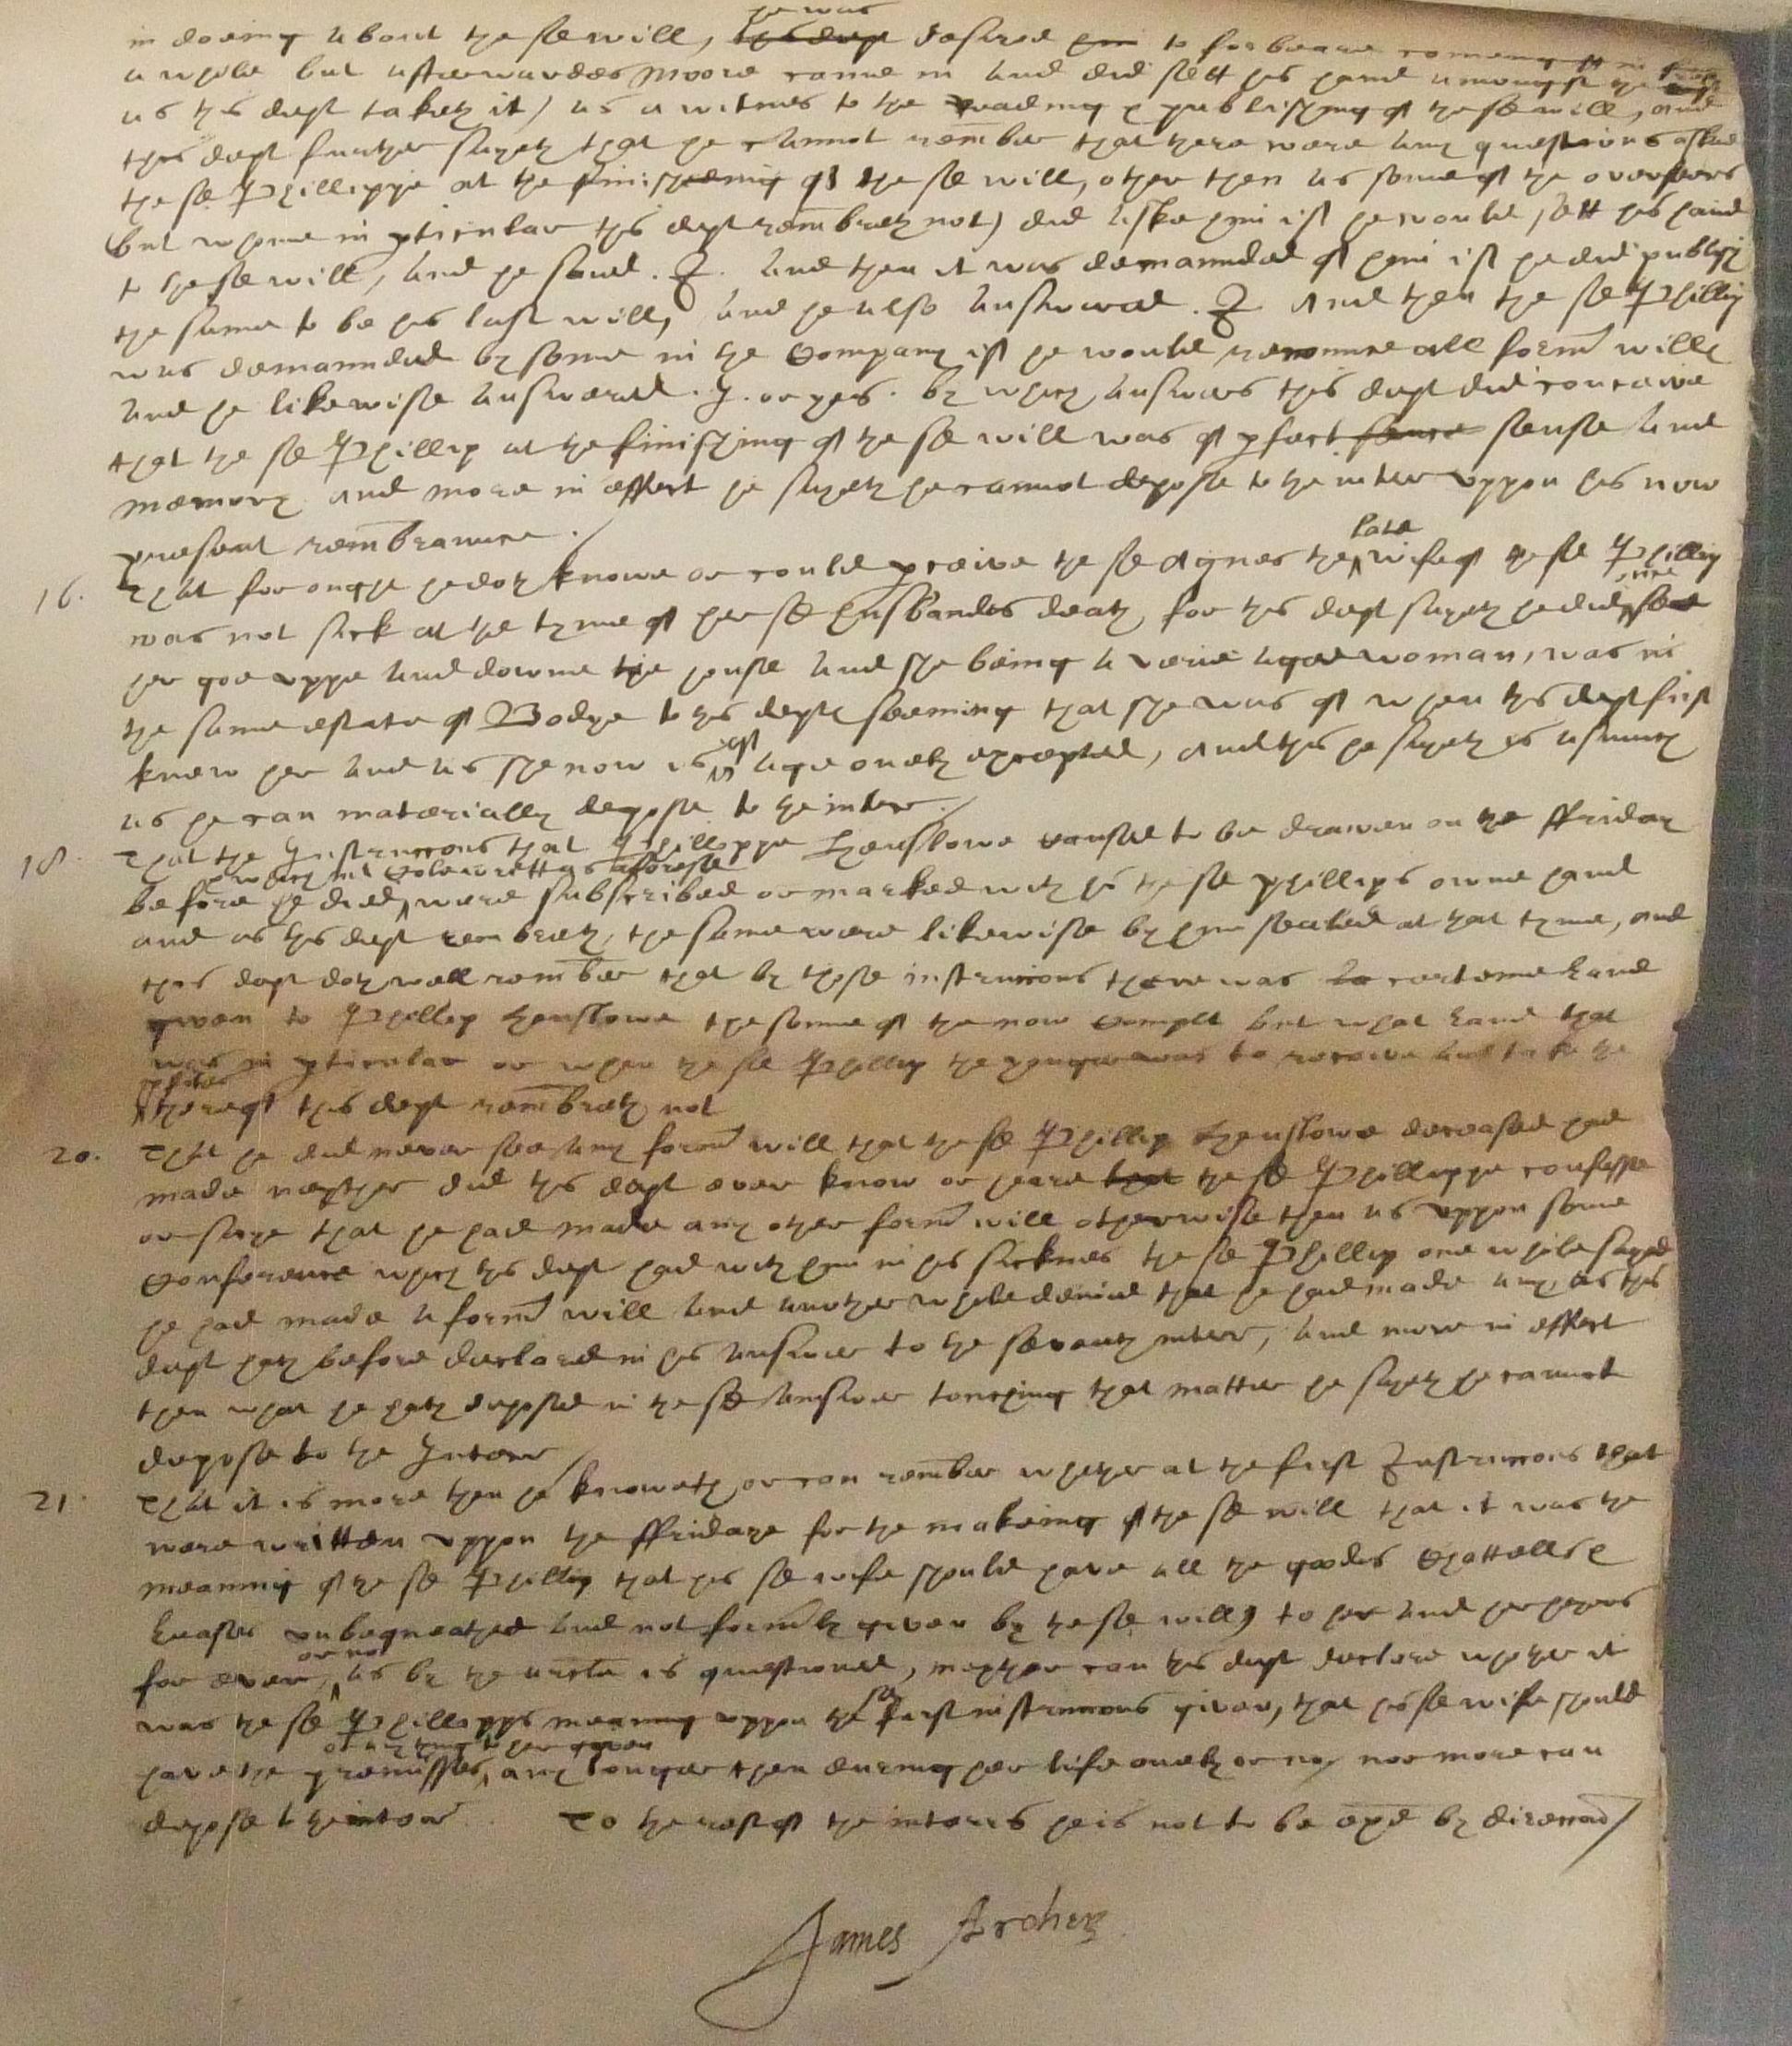 he was
in doeing about the sd will, this dept desired him to forbeare comeing
a while but afterwardes Moore came in and did sett his hand amongst the
as this dept taketh it) as a witnes to the reading & publishing of the sd will, and
this dept further sayeth that he cannot rember that there were any questions asked
the sd Phillippe at the finisheing of the sd will, other then as some of the overseers
(but whome in pticular this dept rembreth not) did aske him if he would sett his hand
to the sd will, and he saied . I . and then it was demaunded of him if he did publish
the same to be his last will, and he also answered . I And then the sd Phillip
was demaunded by some in the Company if he would renounce all form[er] wills
and he likewise answered . I . or yes . by which answers this dept did conceive
that the sd Phillip at the finishing of the sd will was of pfect sence sense and
memory and more in effect he sayeth he cannot depose to the inter uppon his now
present rembrannce ./
late
16. That for ought he doth knowe or could pceive the sd Agnes the wife of the sd Phillip
once
was not sick at the tyme of her sd husbandes death, for this dept sayeth he did see
her goe uppe and downe the house and she being a verie aged woman, was in
the same estate of Bodye to this depts seeming that she was of when this dept first
knew her and as she now is of age onely excepted, and this he sayeth is asmuch
as he can materially depose to the inter ./
18. That the Instruccons that Phillippe Henslowe caused to be drawen on the ffriday
which mr Cole writt as aforesd
before he died were subscribed or marked with his the sd Phillips owne hand
and as this dept rembreth, the same were likewise by him sealed at that tyme, and
this dept doth well rember that by those instruccons there was certeine land
given to Phillip Henslowe the sonne of the now Complt but what land that
was in pticular or when the sd Phillip the younger was to receive and take the
pfittes
thereof this dept rembreth not
20. That he did never see any form[er] will that the sd Phillip Henslowe deceased had
made neyther did this dept ever know or heare that the sd Phillippe confesse
or saye that he had made any other form[er] will otherwise then as uppon some
Conference which this dept had with him in his sicknes the sd Phillip one while sayed
he had made a form[er] will and another while denied that he had made any, as this
dept hath before declared in his answer to the seventh inter, and more in effect
then what he hath deposed in the sd answer touching that matter he sayeth he cannot
depose to the Interr /
21. That it is more then he knoweth or can rember whether at the first Instruccons that
were written uppon the ffridaye for the makeing of the sd will that it was the
meaning of the sd Phillip that his sd wife should have all the goodes Chattells &
Leases unbequeathed and not form[er]ly given by the sd will, to her and her heyres
or not
for ever, as by the is questioned, neyther can this dept declare whether it
sd
was the sd Phillipps meaning uppon the first instruccons given, that his sd wife should
or any thing to her given
have the premisses, any longer then during her life onely or no, nor more can
depose to the interr . To the rest of the interrs he is not to be exd by direccon /
James Archer